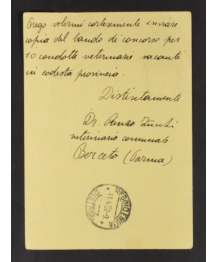 Prego volermi cortesemente inviare
copia del bando di concorso per
10 condotte veterinarie vacanti
in codesta provincia.
Distintamente
Dr. Renzo
veterinario comunale
Berceto (Parma)